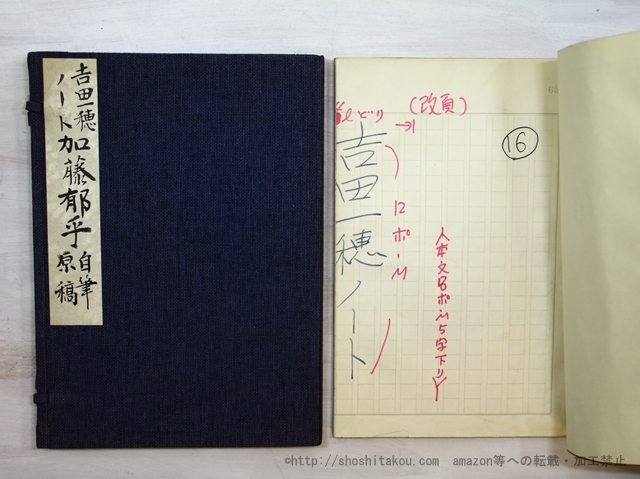 吉田一穂
ノート加藤郁乎自筆
原稿
(改頁)
16
12ポ
吉田一穂ノート
©http://shoshitakou.com amazon等への転載・加工禁止